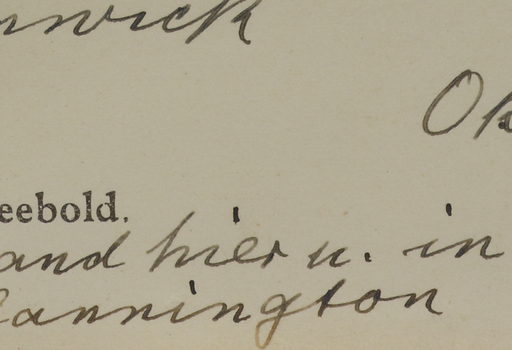 nwick
eebold.
and hier u. in
annington